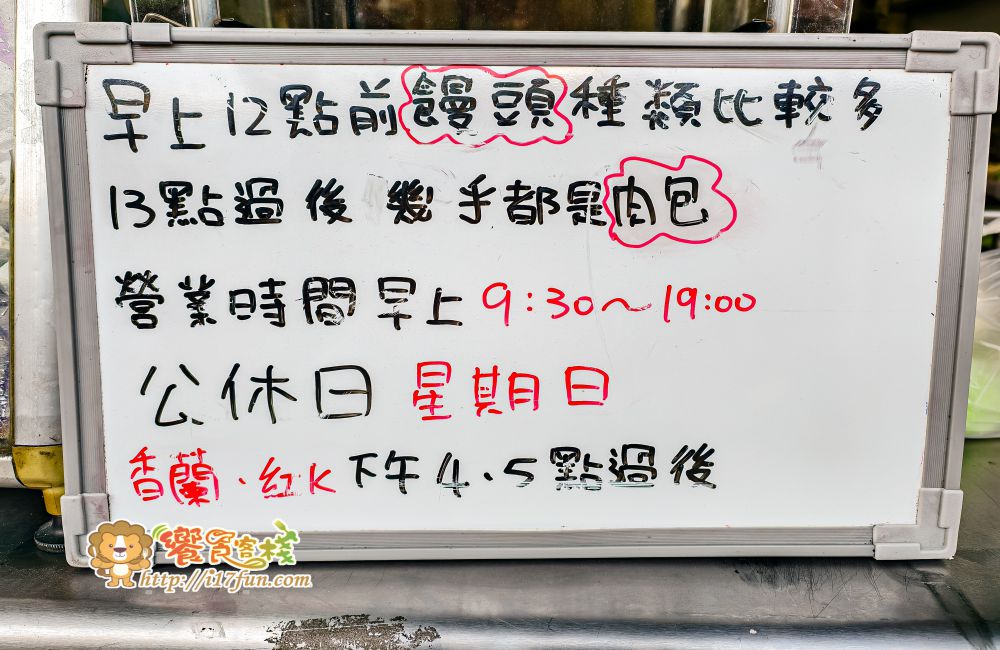 早上12點前饅頭種類比較多
13點過後幾乎都是肉包
營業時間早上9:30~19:00
公休日 星期日
香蘭.紅K下午4.5點過後
饗食客棧
http://i17fun.com